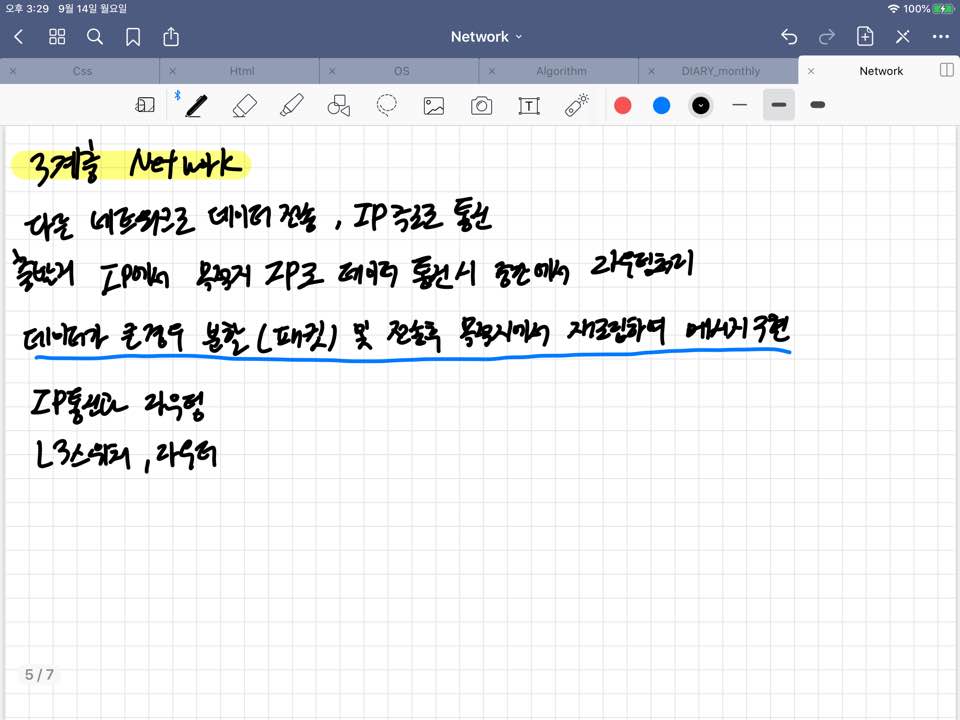 오후 3:29 9월 14일 월요일 100%
Network
Css Html OS Algorithm DIARY_monthly Network
3계층 Network
다른 네트워크로 데이터 전송, IP주소로 통신
출발지 IP에서 목적지 IP로 데이터 통신시 중간에서 라우팅처리
데이터가 큰경우 분할(패킷) 및 전송후 목적지에서 재조립하여 메시지 구현
IP통신과 라우팅
L3스위치, 라우터
5 / 7